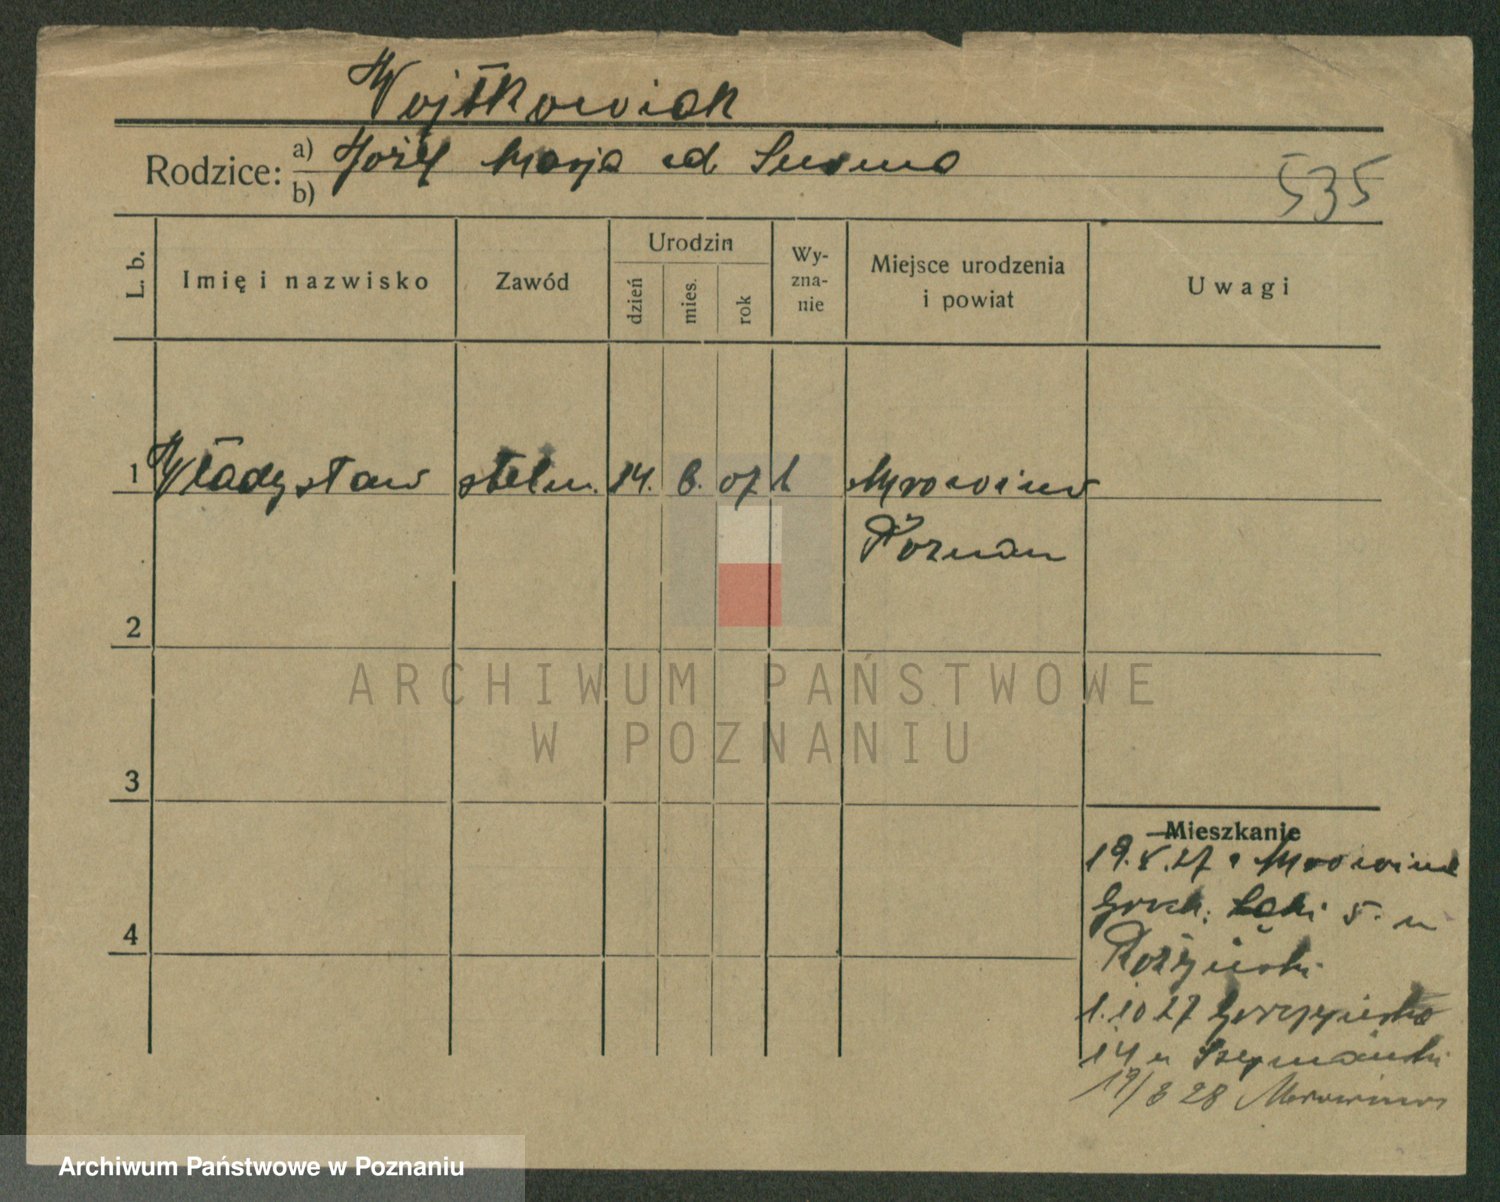 Wojtkowiak
Rodzice: a) Józef Marja
b)
535
L. b.
Imię i nazwisko
Zawód
Urodzin
dzień
mies.
rok
Wy-
zna-
nie
Miejsce urodzenia
i powiat
Uwagi
1 Władysław stelm. 14. 6. 07 k Mrowino
Poznań
2
3
4
Mieszkanie
19.8.27 Mrowino
5. u
1.10 27
14 u Szymański
19/3 28 Mrowino
ARCHIWUM PAŃSTWOWE
W POZNANIU
Archiwum Państwowe w Poznaniu